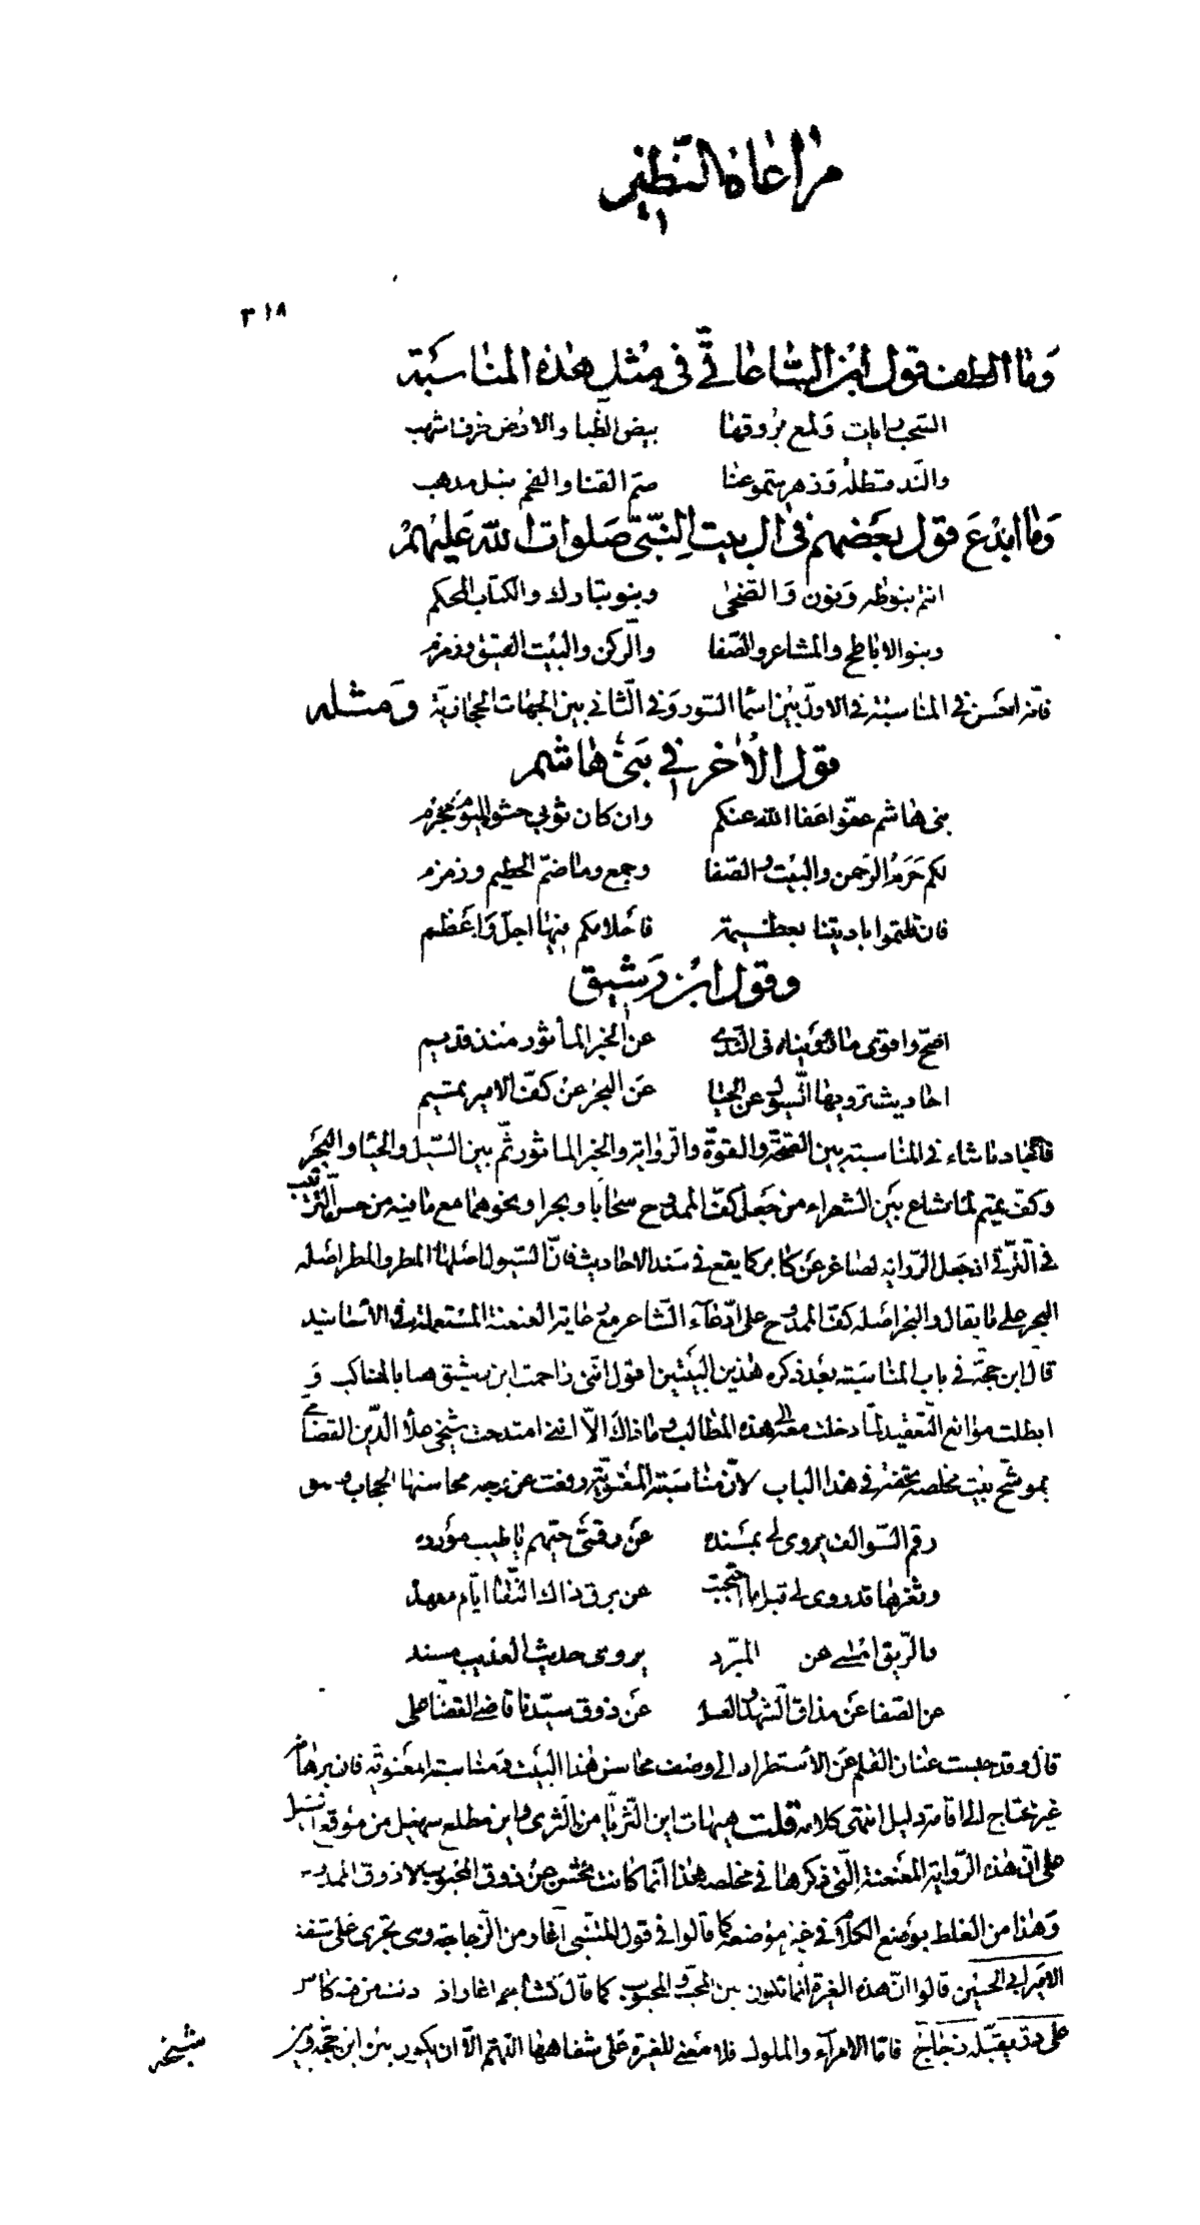 مراعاة النظير
٣١٨
وما الطف قول ابن الساعاتي في مثل هذه المناسبة
السحب رايات ولمع بروقها بيض الظبا والارض طرف اشهب
والند قسطله وزهر شموعنا صم القنا والفحم نبل مذهب
وما ابدع قول بعضهم في ال بيت النبي صلوات الله عليهم
انتم بنو طه ونون والضحى وبنو تبارك والكتاب المحكم
وبنو الاباطح والمشاعر والصفا والركن والبيت العتيق وزمزم
فانه احسن في المناسبة في الاول بين اسما السور وفي الثاني بين الجهات الحجازية ومثله
قول الاخر في بني هاشم
بني هاشم عفوا عفا الله عنكم وان كان ثوبي حشو اليوم مجرم
لكم حرم الرحمن والبيت والصفا وجمع وما ضم الحطيم وزمزم
فان قلتموا باديتنا بعظيمة فاحلامكم منها اجل واعظم
وقول ابن رشيق
اصح واقوى ما رويناه في الندى عن الخبر الماثور منذ قديم
احاديث ترويها السيول عن الحيا عن البحر عن كف الامير تميم
فاجاد ما شاء في المناسبة بين الصحة والقوة والرواية والخبر الماثور ثم بين السيل والحيا والبحر
وكف تميم لما شاع بين الشعراء من جعل كف الممدوح سحابا وبحرا ونحوهما مع ما فيه من حسن الترتيب
في الترقي اذ جعل الرواية لصاغر عن كابر كما يقع في سند الاحاديث فان السيول اصلها المطر والمطر اصله
البحر على ما يقال والبحر اصله كف الممدوح على ادعاء الشاعر مع رعاية العنعنة المستعملة في الاسانيد
قال ابن حجة في باب المناسبة بعد ذكره هذين البيتين اقول انني زاحمت ابن رشيق هنا بالمناكب و
ابطلت موانع التعقيد لما دخلت معه الى هذه المطالب وما ذاك الا انني امتدحت شيخي علاء الدين القضامي
بموشح بيت مخلصه تحفة في هذا الباب لان مناسبته المعنوية رفعت عن وجه محاسنها الحجاب وهو
رقم السوالف يروي لي بمسنده عن رقتي حيهم يا طيب مورده
وثغرها قد روى لي قبل ما احتجبت عن برق ذاك النقا ايام معهده
والريق امسى عن المبرد يروي حديث العذيب مسند
عن الصفا عن مذاق الشهد والعسل عن ذوق سيدنا قاضي القضا علي
قال وقد حبست عنان القلم عن الاستطراد الى وصف محاسن هذا البيت ومناسبته المعنوية فان برهانه
غير محتاج الى اقامة دليل انتهى كلامه قلت هيهات اين الثريا من الثرى واين مطلع سهيل من موقع السيل
على ان هذه الرواية المعنعنة التي ذكرها في مخلصه هذا انما كانت تحسن عن ذوق المحبوب لا ذوق الممدوح
وهذا من الغلط بوضع الكلام في غير موضعه كما قالوا في قول المتنبي اغار من الزجاجة وهي تجري على شفة
الامير ابي الحسين قالوا ان هذه الغيرة انما تكون بين المحب والمحبوب كما قال كشاجم اغار اذا دنت من فيه كاس
على در يقبله زجاج فاما الامراء والملوك فلا معنى للغيرة على شفاهها اللهم الا ان يكون بين ابن حجة وبين
شيخه